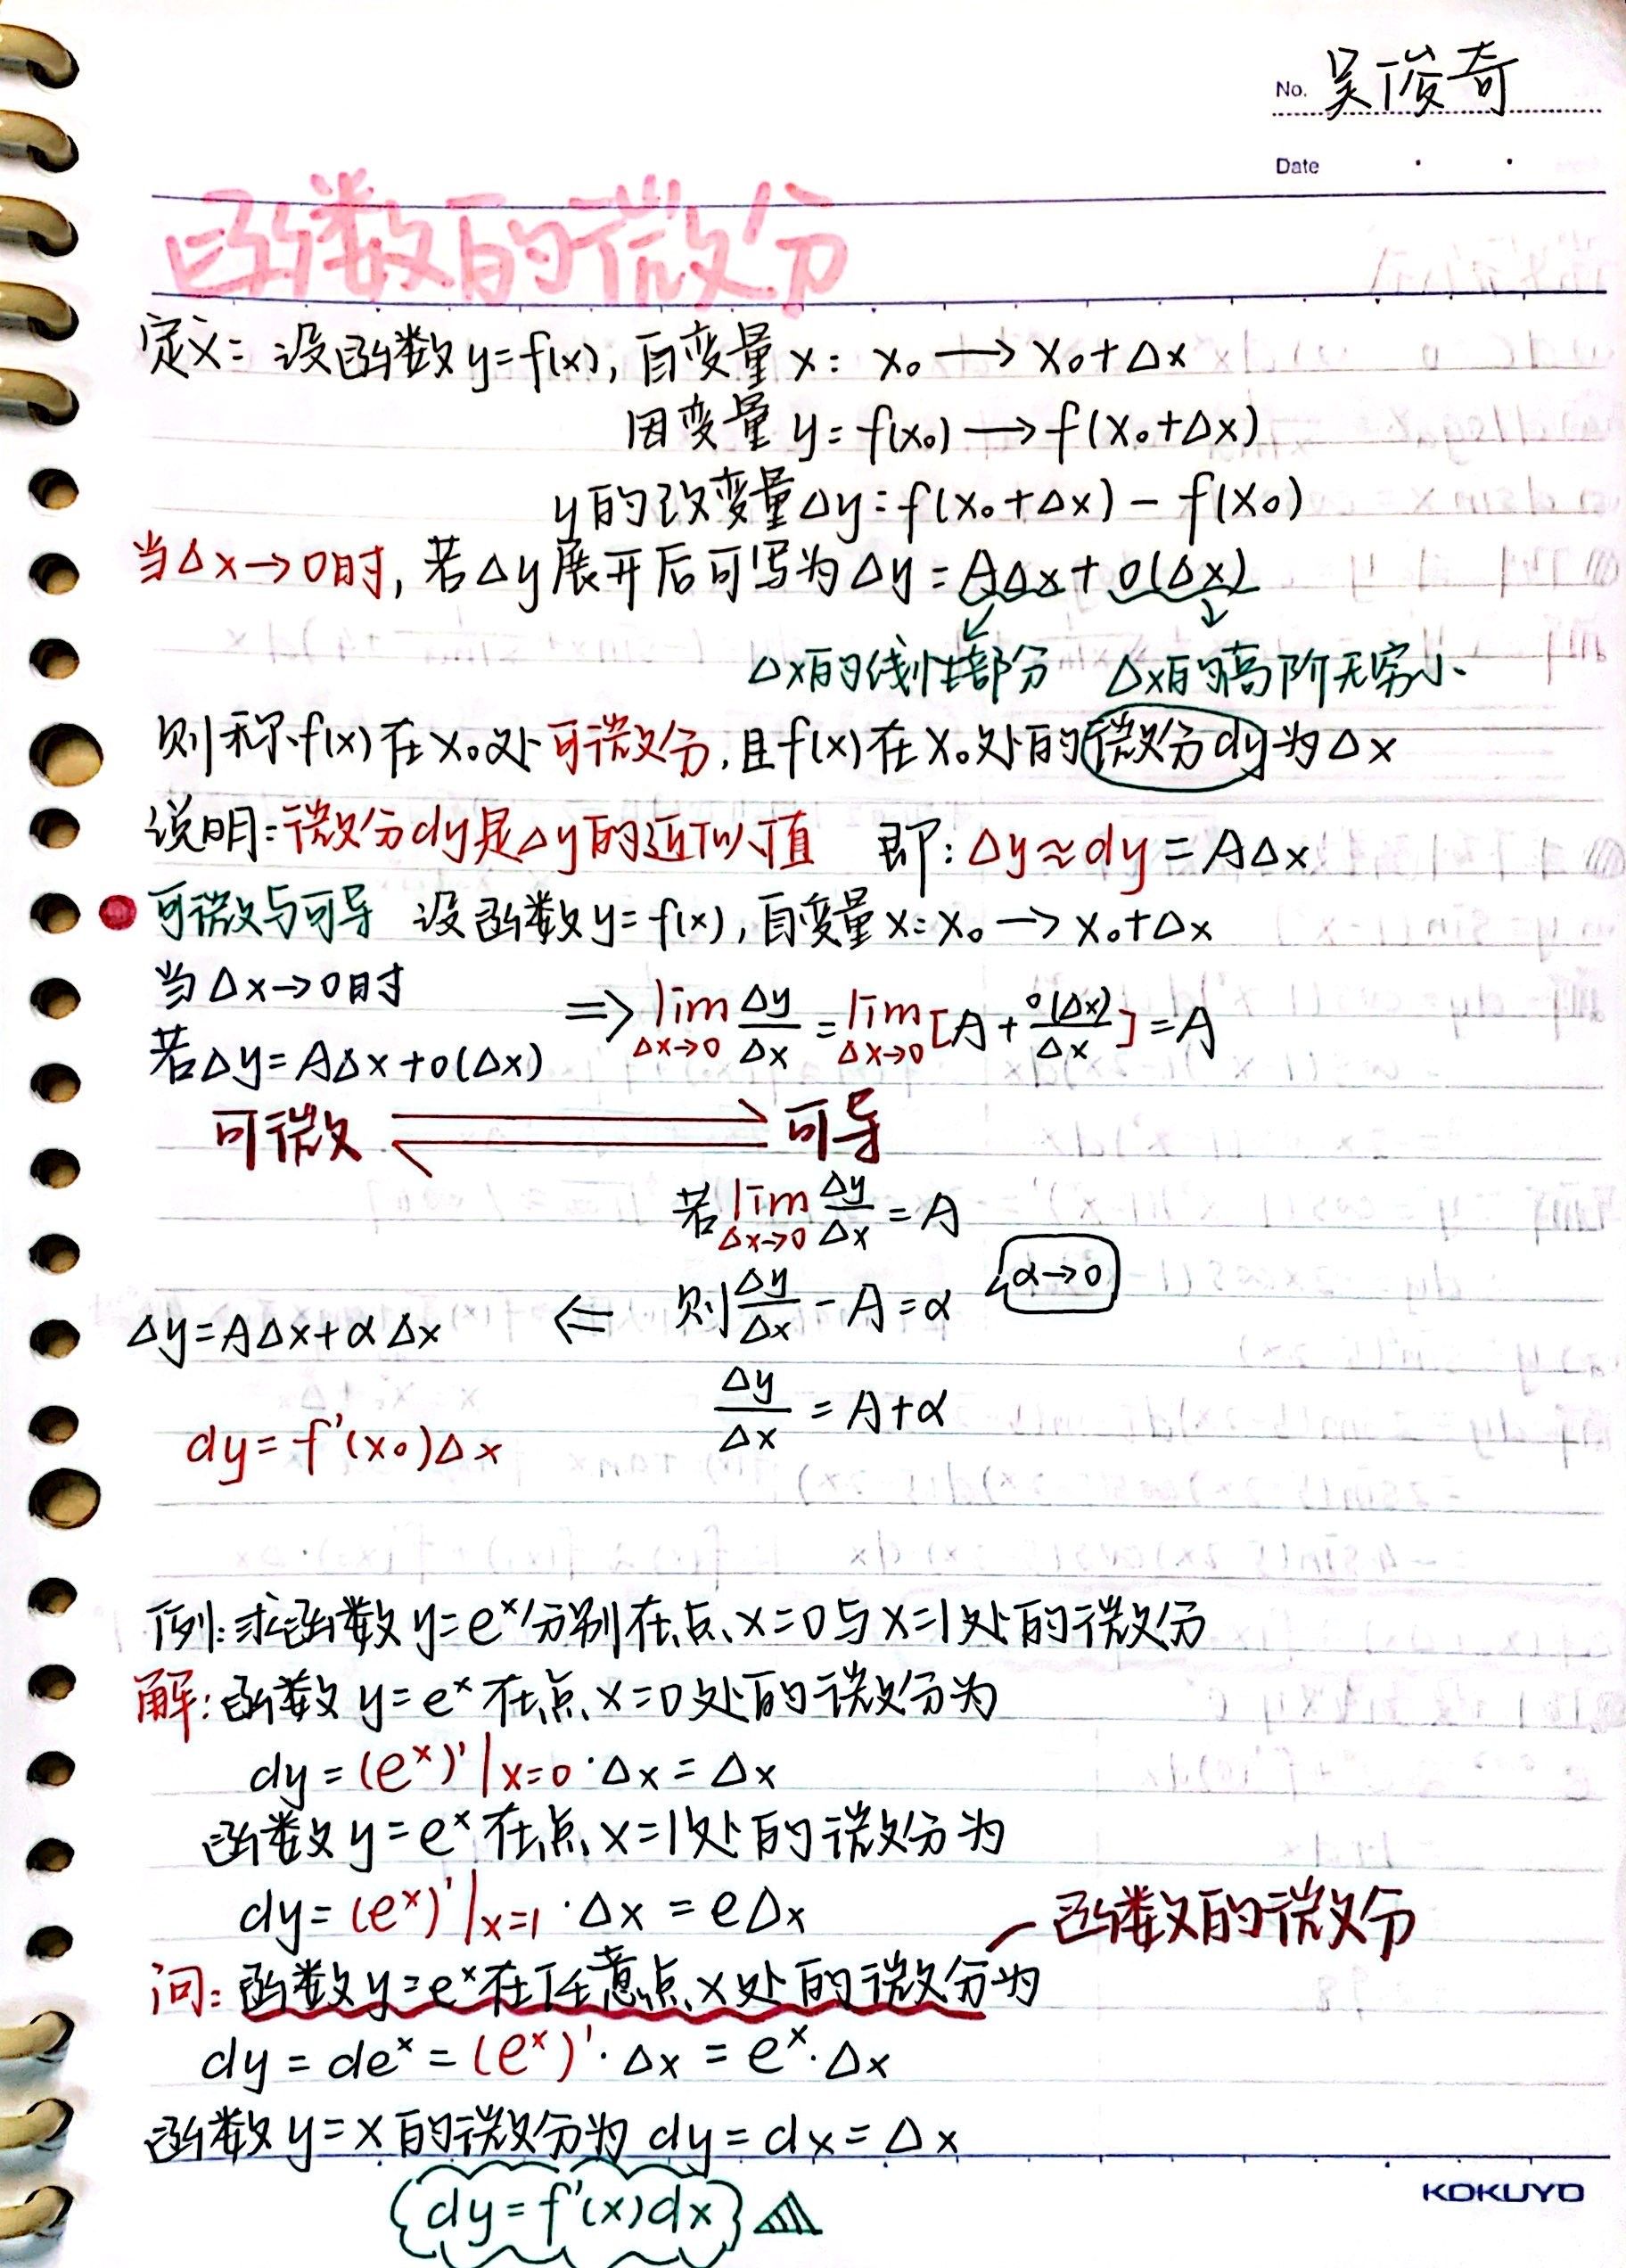 No. 吴俊奇
Date
函数的微分
定义: 设函数y=f(x), 自变量x: x₀→x₀+Δx
因变量y=f(x₀)→f(x₀+Δx)
y的改变量Δy=f(x₀+Δx)-f(x₀)
当Δx→0时, 若Δy展开后可写为Δy=AΔx+o(Δx)
Δx的线性部分 Δx的高阶无穷小
则称f(x)在x₀处可微分,且f(x)在x₀处的微分dy为Δx
说明:微分dy是Δy的近似值 即:Δy≈dy=AΔx
可微与可导 设函数y=f(x),自变量x:x₀→x₀+Δx
当Δx→0时
若Δy=AΔx+o(Δx) ⇒ lim Δx→0 Δy/Δx = lim Δx→0 [A+o(Δx)/Δx]=A
可微 ⇌ 可导
若 lim Δx→0 Δy/Δx=A
Δy=AΔx+αΔx ⇐ 则Δy/Δx-A=α α→0
Δy/Δx=A+α
dy=f'(x₀)Δx
例:求函数y=eˣ分别在点x=0与x=1处的微分
解:函数y=eˣ在点x=0处的微分为
dy=(eˣ)'|x=0·Δx=Δx
函数y=eˣ在点x=1处的微分为
dy=(eˣ)'|x=1·Δx=eΔx
函数的微分
问:函数y=eˣ在任意点x处的微分为
dy=deˣ=(eˣ)'·Δx=eˣ·Δx
函数y=x的微分为dy=dx=Δx
KOKUYO
dy=f'(x)dx